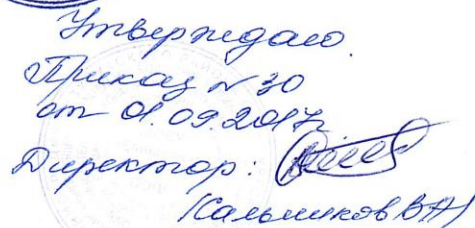 Утверждаю.
Приказ N 30
от 01.09.2017г
Директор:
/Кальчиков ВА/